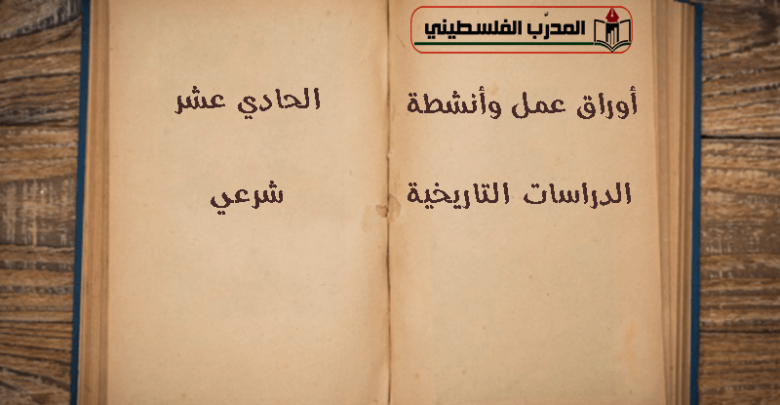 المدرّب الفلسطيني
أوراق عمل وأنشطة
الدراسات التاريخية
الحادي عشر
شرعي